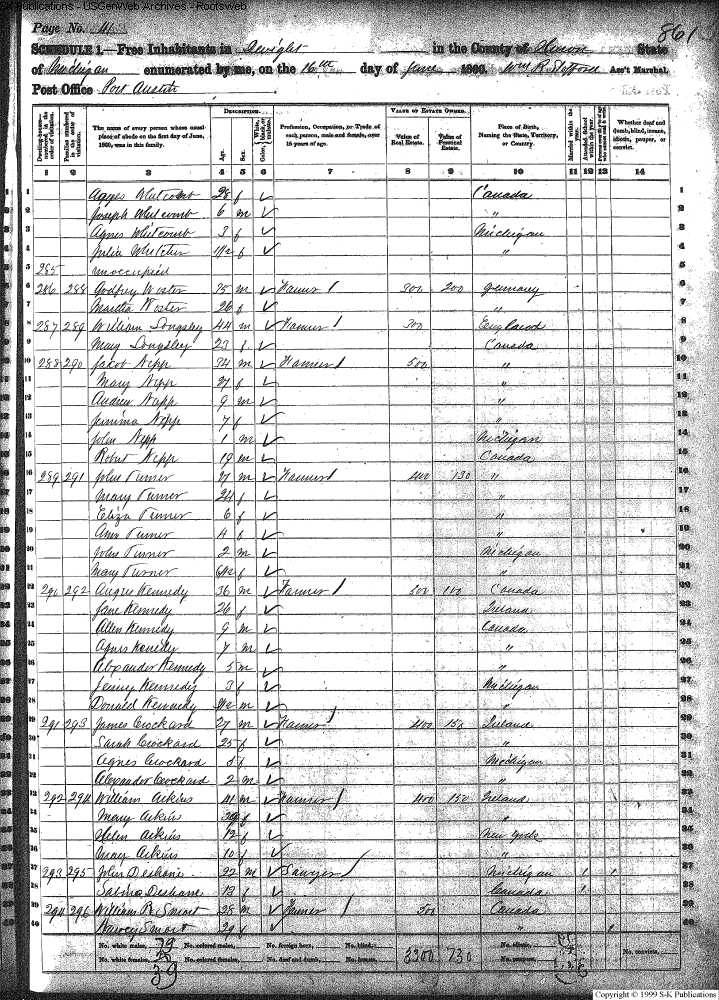 S-K Publications - USGenWeb Archives - Rootsweb
Page No. 41
861
SCHEDULE 1.—Free Inhabitants in Dwight in the County of Huron State
of Michigan enumerated by me, on the 16th day of June 1860. Wm R Stafford Ass't Marshal.
Post Office Port Austin
Dwelling-houses—numbered in the order of visitation.
Families numbered in the order of visitation.
The name of every person whose usual place of abode on the first day of June, 1860, was in this family.
DESCRIPTION.
Age.
Sex.
Color, White, black, or mulatto.
Profession, Occupation, or Trade of each person, male and female, over 15 years of age.
VALUE OF ESTATE OWNED.
Value of Real Estate.
Value of Personal Estate.
Place of Birth, Naming the State, Territory, or Country.
Married within the year.
Attended School within the year.
Whether deaf and dumb, blind, insane, idiotic, pauper, or convict.
1 2 3 4 5 6 7 8 9 10 11 12 13 14
1 Agnes Whitcomb 28 f ✓ Canada 1
2 Joseph Whitcomb 6 m ✓ " 2
3 Agnes Whitcomb 3 f ✓ Michigan 3
4 Julia 1/12 f ✓ " 4
5 285 unoccupied 5
6 286 288 Godfrey Wester 35 m ✓ Farmer / 300 200 Germany 6
7 Martha Wester 26 f ✓ " 7
8 287 289 William Longsley 44 m ✓ Farmer / 300 England 8
9 Mary Longsley 23 f ✓ Canada 9
10 288 290 Jacob Nipp 34 m ✓ Farmer / 500 " 10
11 Mary Nipp 27 f ✓ " 11
12 Andrew Nipp 9 m ✓ " 12
13 Jemima Nipp 7 f ✓ " 13
14 John Nipp 1 m ✓ Michigan 14
15 Robert Nipp 19 m ✓ Canada 15
16 289 291 John Turner 27 m ✓ Farmer / 400 130 " 16
17 Mary Turner 24 f ✓ " 17
18 Eliza Turner 6 f ✓ " 18
19 Ann Turner 4 f ✓ " 19
20 John Turner 2 m ✓ Michigan 20
21 Mary Turner 6/12 f ✓ " 21
22 290 292 Angus Kennedy 36 m ✓ Farmer / 500 100 Canada 22
23 Jane Kennedy 26 f ✓ Ireland 23
24 Allen Kennedy 9 m ✓ Canada 24
25 Agnes Kennedy 7 m ✓ " 25
26 Alexander Kennedy 5 m ✓ " 26
27 Jenny Kennedy 3 f ✓ Michigan 27
28 Donald Kennedy 9/12 m ✓ " 28
29 291 293 James Crockard 27 m ✓ Farmer / 400 150 Ireland 29
30 Sarah Crockard 25 f ✓ " 30
31 Agnes Crockard f ✓ Michigan 31
32 Alexander Crockard 2 m ✓ " 32
33 292 294 William Aikins 41 m ✓ Farmer / 400 150 Ireland 33
34 Mary Aikins 39 f ✓ " 34
35 Helen Aikins 12 f ✓ New York 35
36 Mary Aikins 10 f ✓ " 36
37 293 295 John Deshane 22 m ✓ Sawyer / Michigan / / 37
38 Sabina Deshane 18 f ✓ Canada / 38
39 294 296 William R Smart 28 m ✓ Farmer / 500 Canada 39
40 Harvey Smart 29 f ✓ " 40
No. white males, 19 No. colored males, No. foreign born, No. blind,
No. white females, 20 No. colored females, No. deaf and dumb, No. insane, 3300 730 No. idiotic, No. paupers, No. convicts,
39
Copyright © 1999 S-K Publications